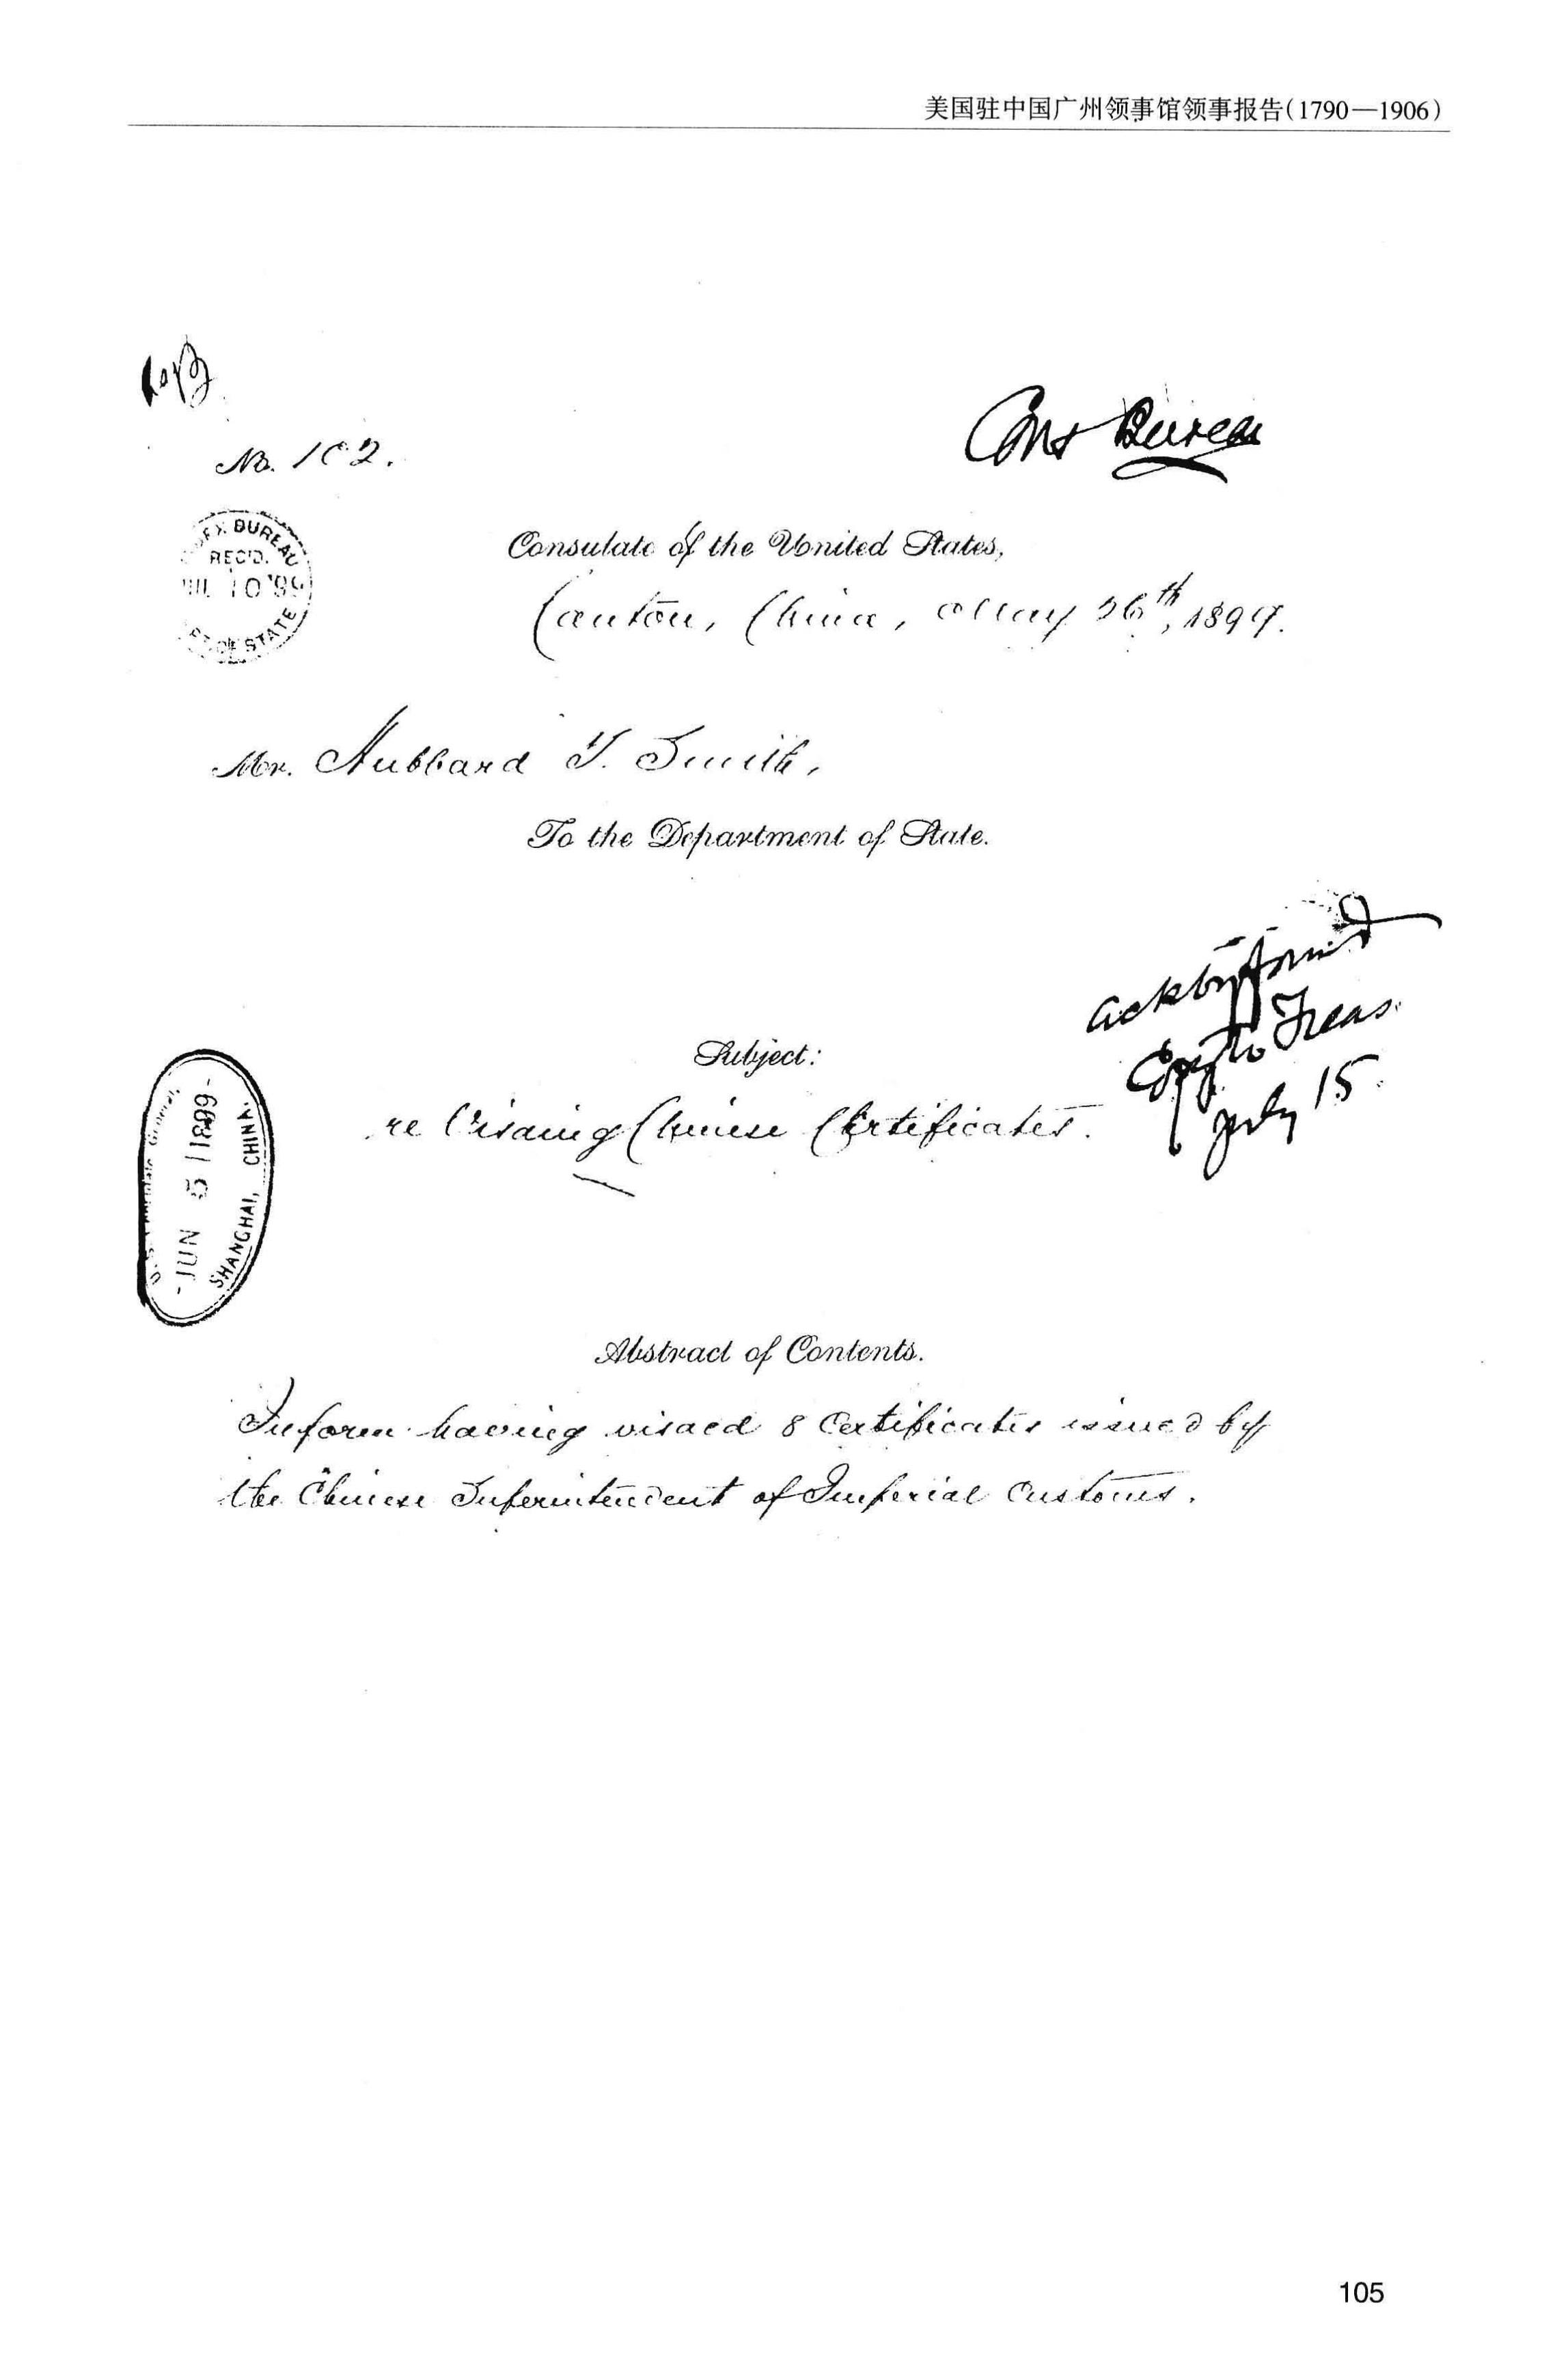 美国驻中国广州领事馆领事报告(1790—1906)
No. 102.
Cons Bureau
BUREAU
REC'D.
JUL 10 '99
OF STATE
Consulate of the United States,
Canton, China, May 26th, 1899.
Mr. Hubbard T. Smith,
To the Department of State.
Ack by form
Copy to Treas.
July 15
Subject:
re Visaing Chinese Certificates.
JUN 5 1899
SHANGHAI, CHINA.
Abstract of Contents.
Inform having visaed 8 Certificates issued by
the Chinese Superintendent of Imperial Customs.
105